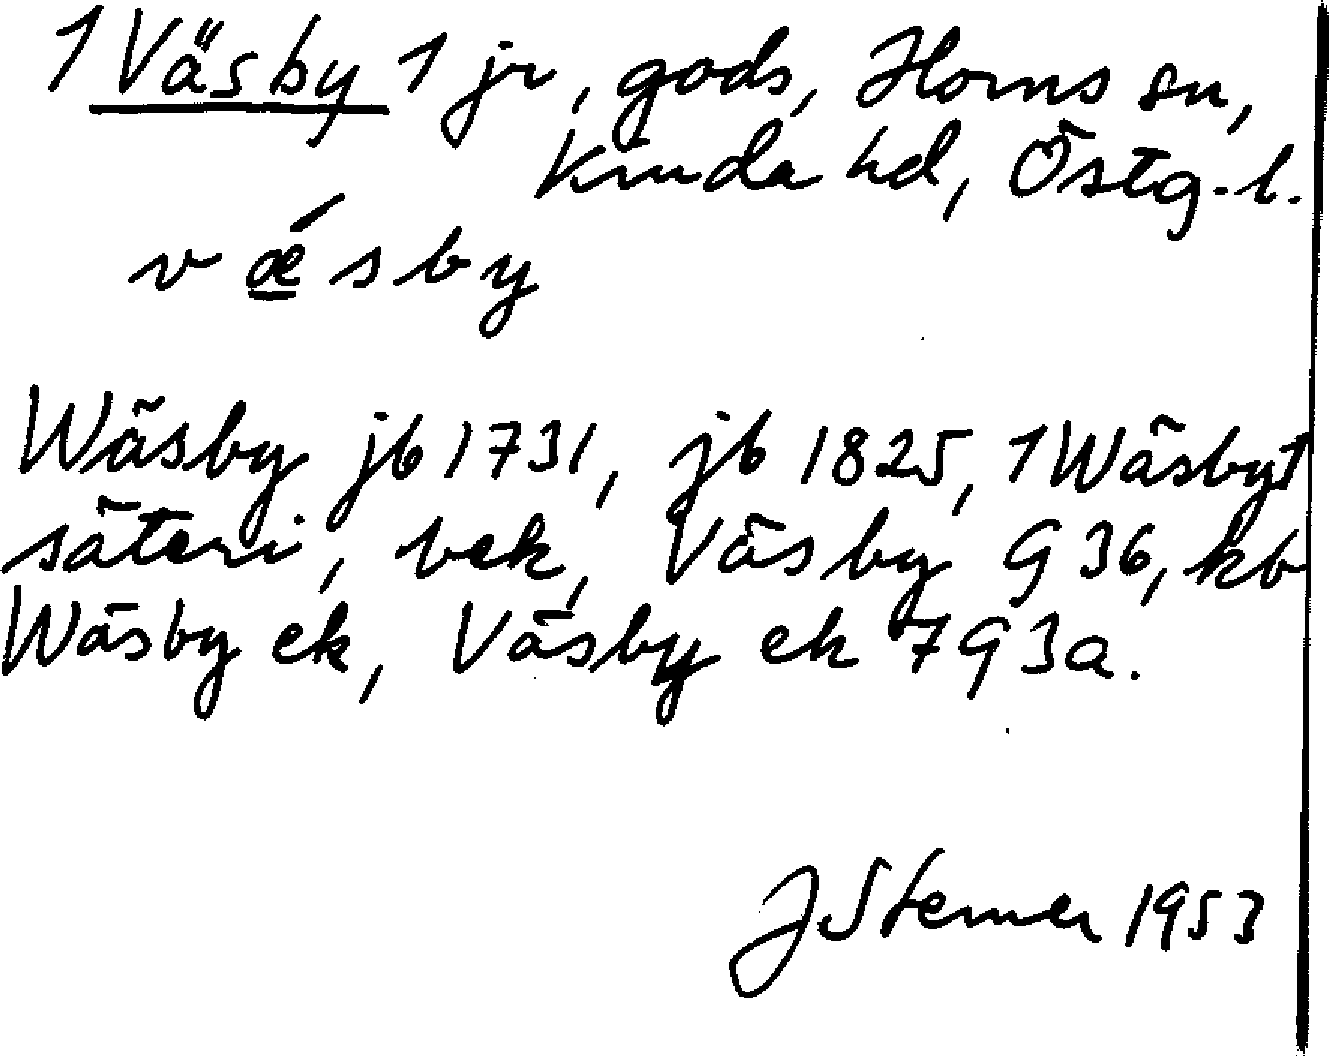 1 Väsby 1 jr, gods, Horns sn,
Kinda hd, Östg.l.
v ǽ s b y
Wäsby jb 1731, jb 1825, 1 Wäsby 1
säteri, bek, Väsby G 36, kb
Wäsby ek, Väsby ek 7 G 3a.
J Sterner 1953